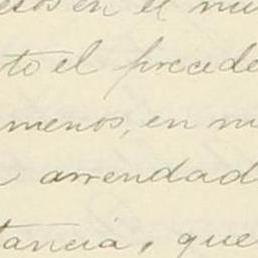 esos en el nu
to el precede
menos, en m
a arrendad
tancia, que